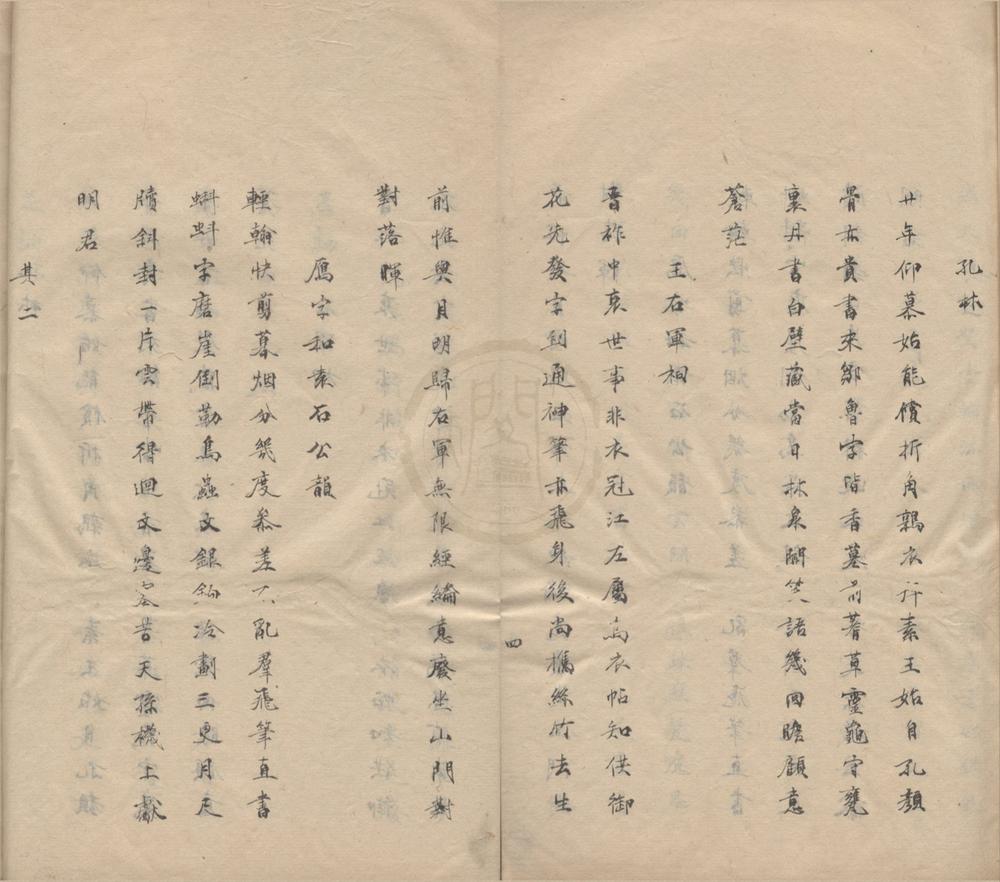 孔林
廿年仰慕始能償折角鶉衣拜素王始自孔顏
骨亦貴書來鄒魯字皆香墓前蓍草靈龜守甕
裏丹書白壁藏當日林泉關笑語幾回瞻顧意
蒼茫
王右軍祠
晋祚中衰世事非衣冠江左屬烏衣帖知供御
花先發字到通神筆亦飛身後尚攜絲竹去生
四
前惟與月明歸右軍無限經綸意廢坐山門對
對落暉
鴈字和素石公韻
輕翰快剪暮烟分幾度參差不亂羣飛筆直書
蝌蚪字磨崖倒勒鳥蟲文銀鉤冷劃三更月尺
牘斜封一片雲帶得迴文邊塞苦天孫機上獻
明君
其二